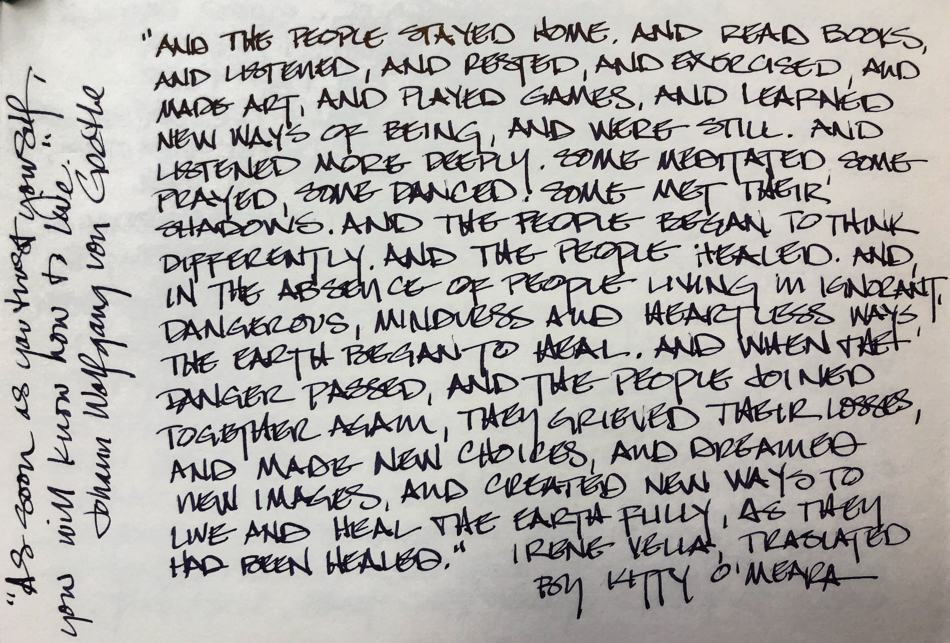 "AND THE PEOPLE STAYED HOME. AND READ BOOKS,
AND LISTENED, AND RESTED, AND EXERCISED, AND
MADE ART, AND PLAYED GAMES, AND LEARNED
NEW WAYS OF BEING, AND WERE STILL. AND
LISTENED MORE DEEPLY. SOME MEDITATED, SOME
PRAYED, SOME DANCED. SOME MET THEIR
SHADOWS. AND THE PEOPLE BEGAN TO THINK
DIFFERENTLY. AND THE PEOPLE HEALED. AND,
IN THE ABSENCE OF PEOPLE LIVING IN IGNORANT,
DANGEROUS, MINDLESS AND HEARTLESS WAYS,
THE EARTH BEGAN TO HEAL. AND WHEN THE
DANGER PASSED, AND THE PEOPLE JOINED
TOGETHER AGAIN, THEY GRIEVED THEIR LOSSES,
AND MADE NEW CHOICES, AND DREAMED
NEW IMAGES, AND CREATED NEW WAYS TO
LIVE AND HEAL THE EARTH FULLY, AS THEY
HAD BEEN HEALED." IRENE VELLA, TRASLATED
BY KITTY O'MEARA
"As soon as you trust yourself,
you will know how to live."
Johann Wolfgang von Goethe